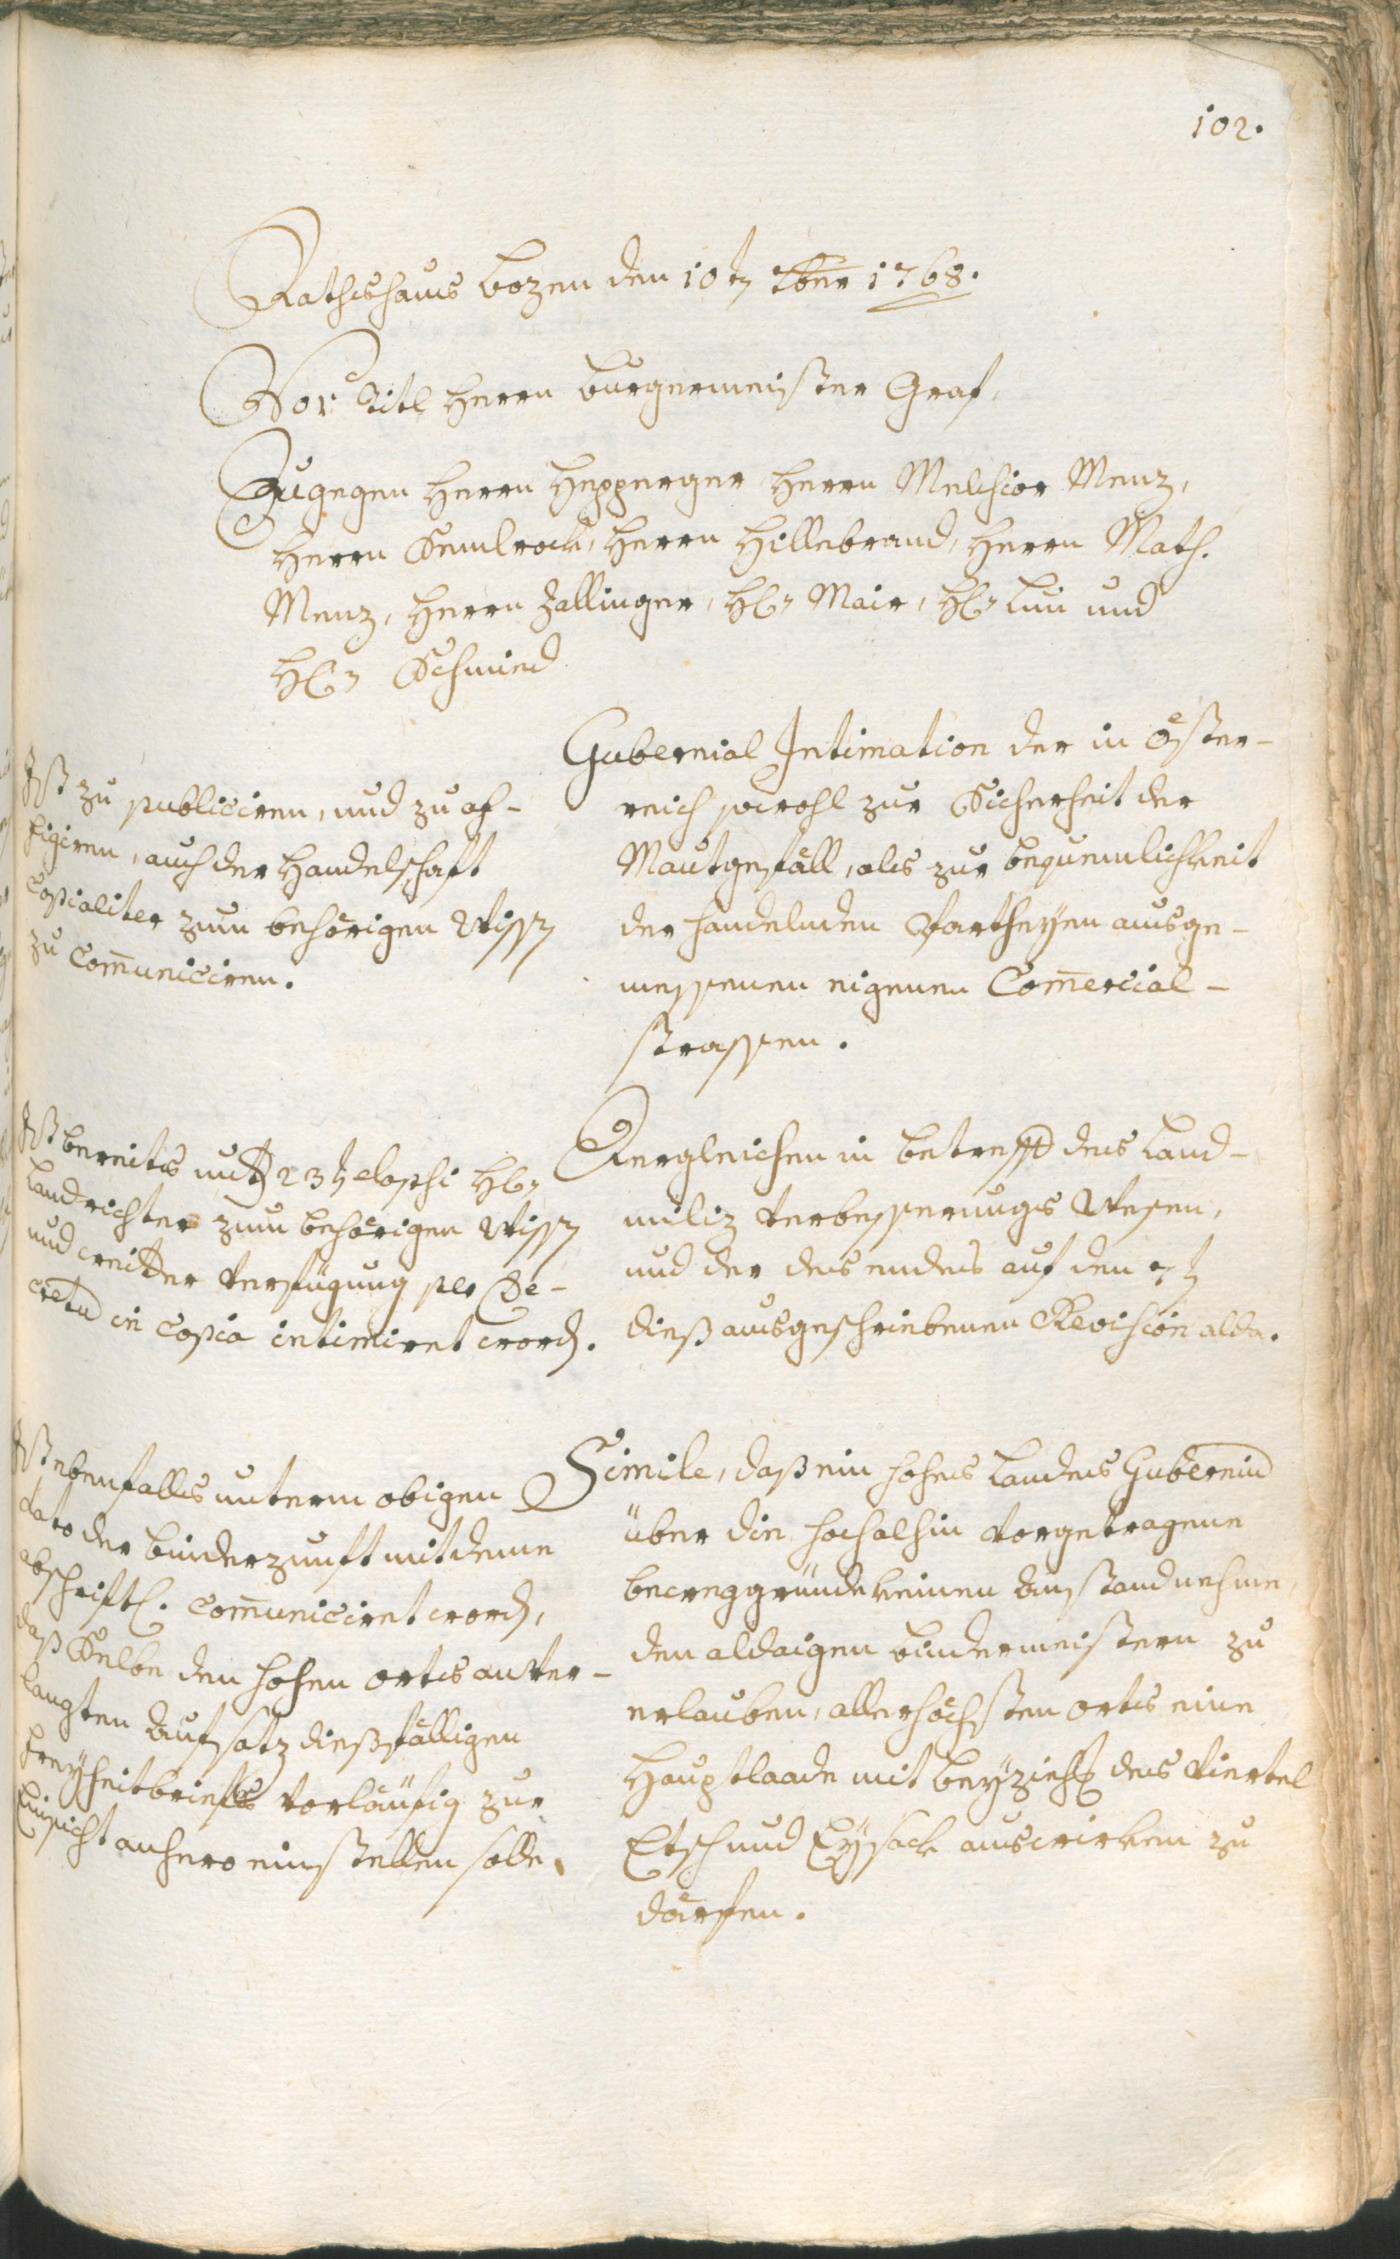 102.
Rathshaus bozen den 10t 7ber 1768.
Vor Titl Herrn burgermeister Graf,
Zugegen Herrn Hepperger Herrn Melchior Menz,
Herrn Semlrock, Herrn Hillebrand, Herrn Math.
Menz, Herrn Zallinger, H. Mair, H. Lun und
H. Schmied
Ist zu publiciren, und zu af-
figiren, auch der Handelschaft
Copialiter zum behörigen Wissen
zu Com̄uniciren.
Gubernial Intimation der in Öster-
reich sowohl zur Sicherheit der
Mautgefäll, als zur bequemlichkeit
der handelnden Partheÿen ausge-
messenen eigenen Com̄ercial-
strassen.
Ist bereits unterm 23t elapsi H.
Landrichter zum behörigen Wissen
und weitter Verfügung per De-
cretum in Copia intimiret word.
Dergleichen in betreff des Land-
miliz Verbesserungs Wesen,
und der des endes auf den 7t
dieß ausgeschriebenen Revision alda.
Ist ebenfalls unterm obigen
dato der binderzunft mit deme
abschriftl. Com̄uniciret word,
daß Selbe den hohen orts anver-
langten Aufsatz dießfälligen
freÿheitbriefs vorläufig zur
Einsicht anhero einstellen solle.
Simile, daß ein hohes Landes Gubernium
über die hochalhin vorgetragene
beweggründe keinen Anstand nehme,
den aldaigen bindermeistern zu
erlauben, allerhöchsten orts eine
Hauptlaade mit beÿziehung des Viertel
Etsch und Eÿsack auswirken zu
därfen.